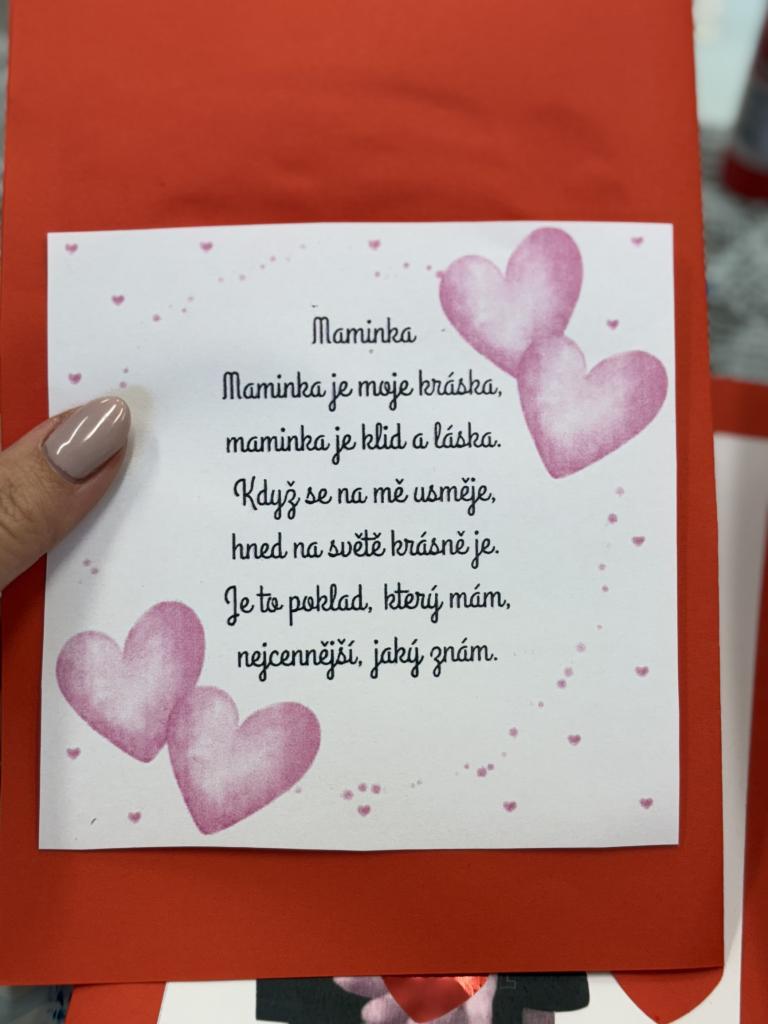 Maminka
Maminka je moje kráska,
maminka je klid a láska.
Když se na mě usměje,
hned na světě krásně je.
Je to poklad, který mám,
nejcennější, jaký znám.